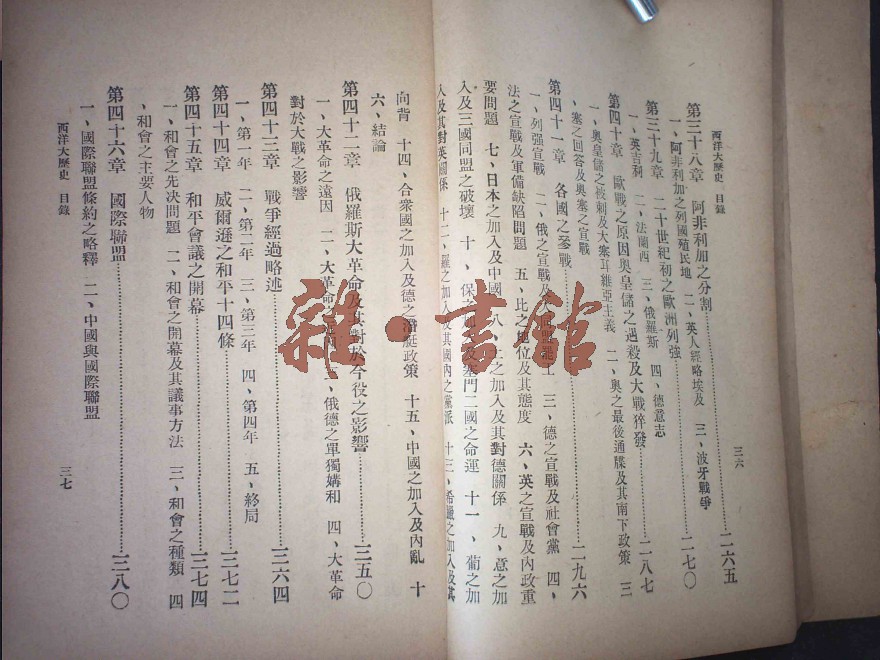 西洋大歷史 目錄
三六
第三十八章 阿非利加之分割……二六五
一、阿非利加之列國殖民地 二、英人經略埃及 三、波牙戰爭
第三十九章 二十世紀初之歐洲列強……二七〇
一、英吉利 二、法蘭西 三、俄羅斯 四、德意志
第四十章 歐戰之原因奧皇儲之遇殺及大戰猝發……二八七
一、奧皇儲之被刺及大塞耳維亞主義 二、奧之最後通牒及其南下政策 三
、塞之回答及奧塞之宣戰
第四十一章 各國之參戰……二九六
一、列强宣戰 二、俄之宣戰及 三、德之宣戰及社會黨 四、
法之宣戰及軍備缺陷問題 五、比之地位及其態度 六、英之宣戰及內政重
要問題 七、日本之加入及中國 八、土之加入及其對德關係 九、意之加
入及三國同盟之破壞 十、保之加入及塞門二國之命運 十一、葡之加
入及其對英關係 十二、羅之加入及其國內之黨派 十三、希臘之加入及其
向背 十四、合衆國之加入及德之潛艇政策 十五、中國之加入及內亂 十
六、結論
第四十二章 俄羅斯大革命及其對於今役之影響……三五〇
一、大革命之遠因 二、大革命之 三、俄德之單獨媾和 四、大革命
對於大戰之影響
第四十三章 戰爭經過略述……三六四
一、第一年 二、第二年 三、第三年 四、第四年 五、終局
第四十四章 威爾遜之和平十四條……三七二
第四十五章 和平會議之開幕……三七四
一、和會之先決問題 二、和會之開幕及其議事方法 三、和會之種類 四
、和會之主要人物
第四十六章 國際聯盟……三八〇
一、國際聯盟條約之略釋 二、中國與國際聯盟
西洋大歷史 目錄
三七
雜·書館